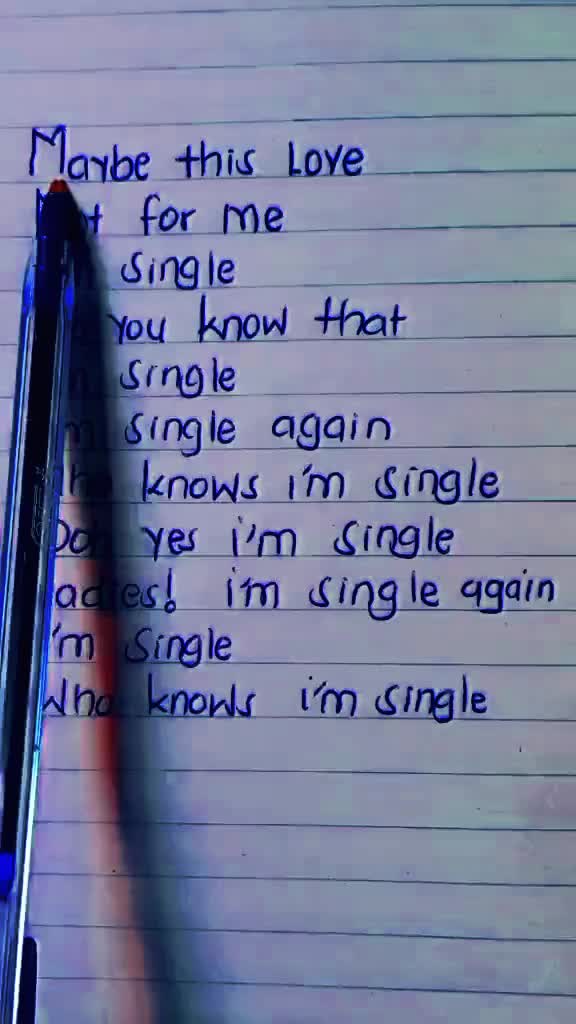 Maybe this Love
for me
single
you know that
single
single again
knows i'm single
yes i'm single
Ladies! i'm single again
I'm Single
Who knows i'm single